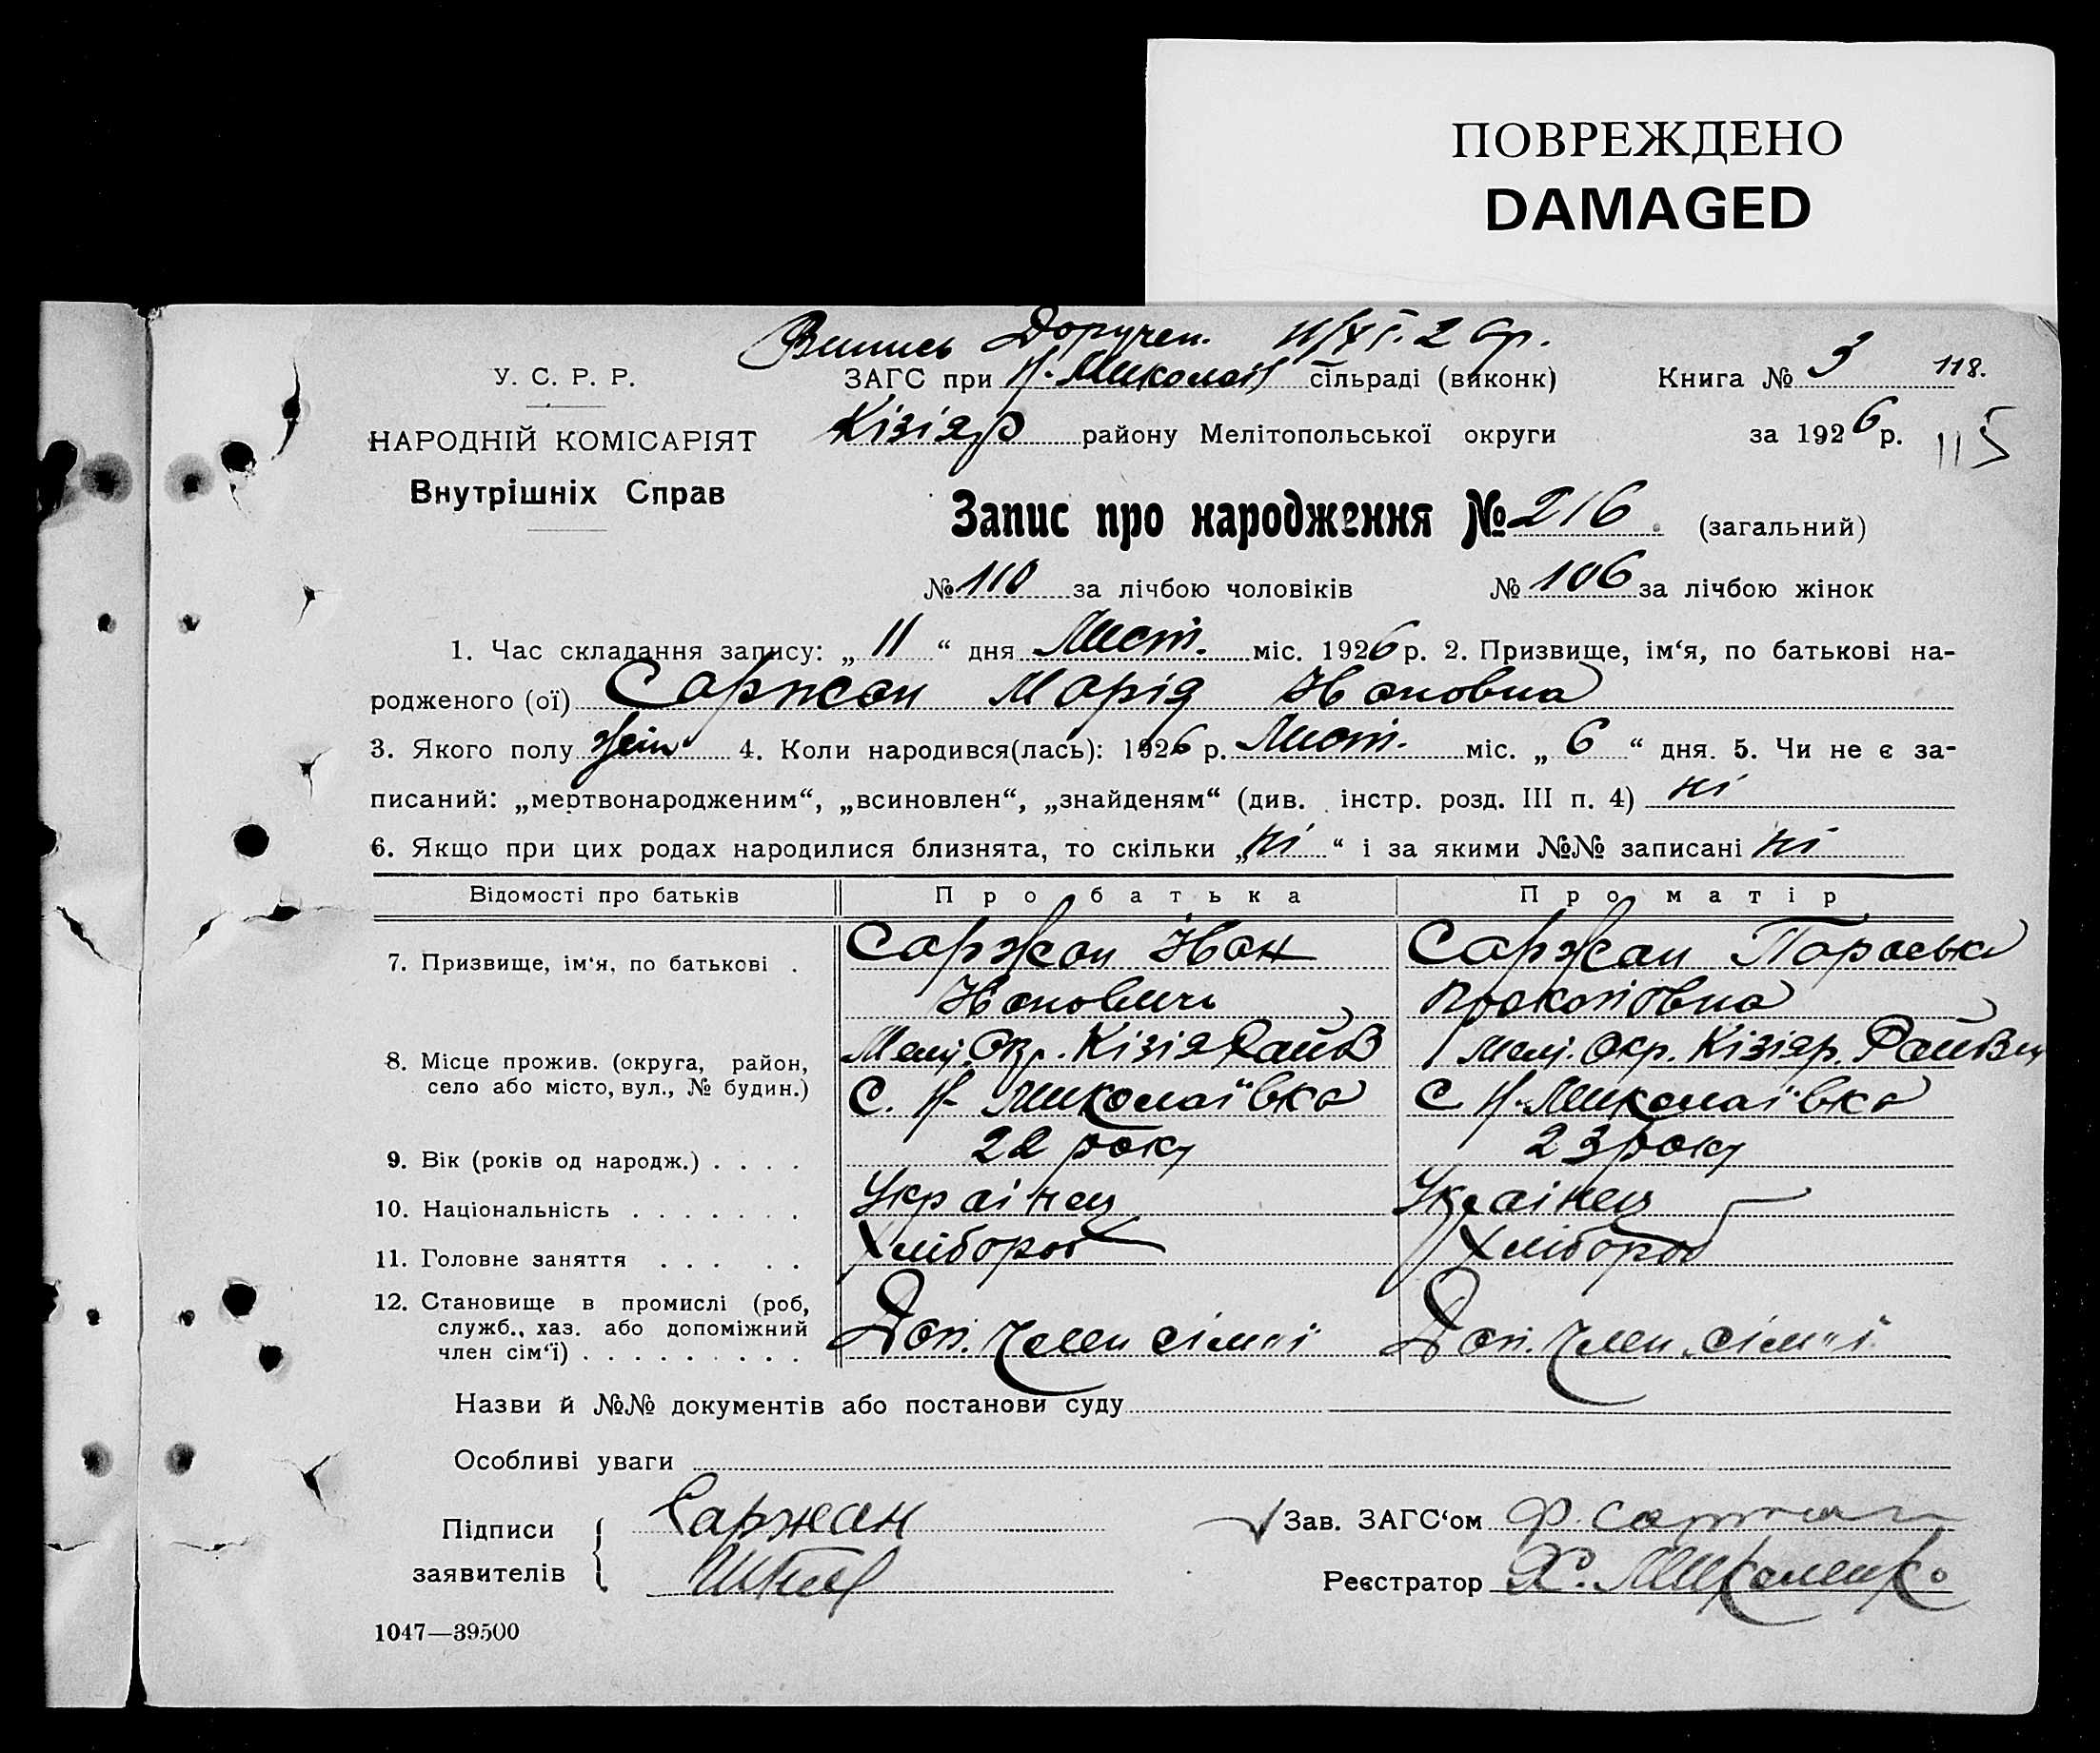 ПОВРЕЖДЕНО
DAMAGED
Випись Доручен.
У. С. Р. Р.
ЗАГС при Н. Миколаїв сільраді (виконк)
Книга № 3
118.
НАРОДНІЙ КОМІСАРІЯТ
Внутрішніх Справ
Кізіяр району Мелітопольської округи
за 1926 р.
115
Запис про народження № 216 (загальний)
№ 110 за лічбою чоловіків № 106 за лічбою жінок
1. Час складання запису: „ 11 “ дня Лист. міс. 1926 р. 2. Призвище, ім‘я, по батькові на-
родженого (ої) Саржан Марія Івановна
3. Якого полу жін 4. Коли народився(лась): 1926 р. Лист. міс. „ 6 “ дня. 5. Чи не є за-
писаний: „мертвонародженим“, „всиновлен“, „знайденям“ (див. інстр. розд. III п. 4) ні
6. Якщо при цих родах народилися близнята, то скільки „ ні “ і за якими №№ записані ні
Відомості про батьків Про батька Про матір
7. Призвище, ім‘я, по батькові . Саржан Іван Саржан Параська
Іванович Прокопівна
8. Місце прожив. (округа, район, Меліт. Окр. Кізіяр. Меліт. Окр. Кізіяр.
село або місто, вул., № будин.) С. Н Миколаївка С Н. Миколаївка
9. Вік (років од народж.) . . . . 22 року 23 року
10. Національність . . . . . . . Українец Українец
11. Головне заняття . . . . . Хлібороб Хлібороб
12. Становище в промислі (роб,
служб., хаз. або допоміжний
член сім‘ї) . . . . . . . . . Доп. член сімʼї Доп. член сімʼї
Назви й №№ документів або постанови суду
Особливі уваги
Підписи
заявителів
Саржан
Зав. ЗАГС‘ом Ф. Саржан
Реєстратор Х. Миколенко
1047—39500